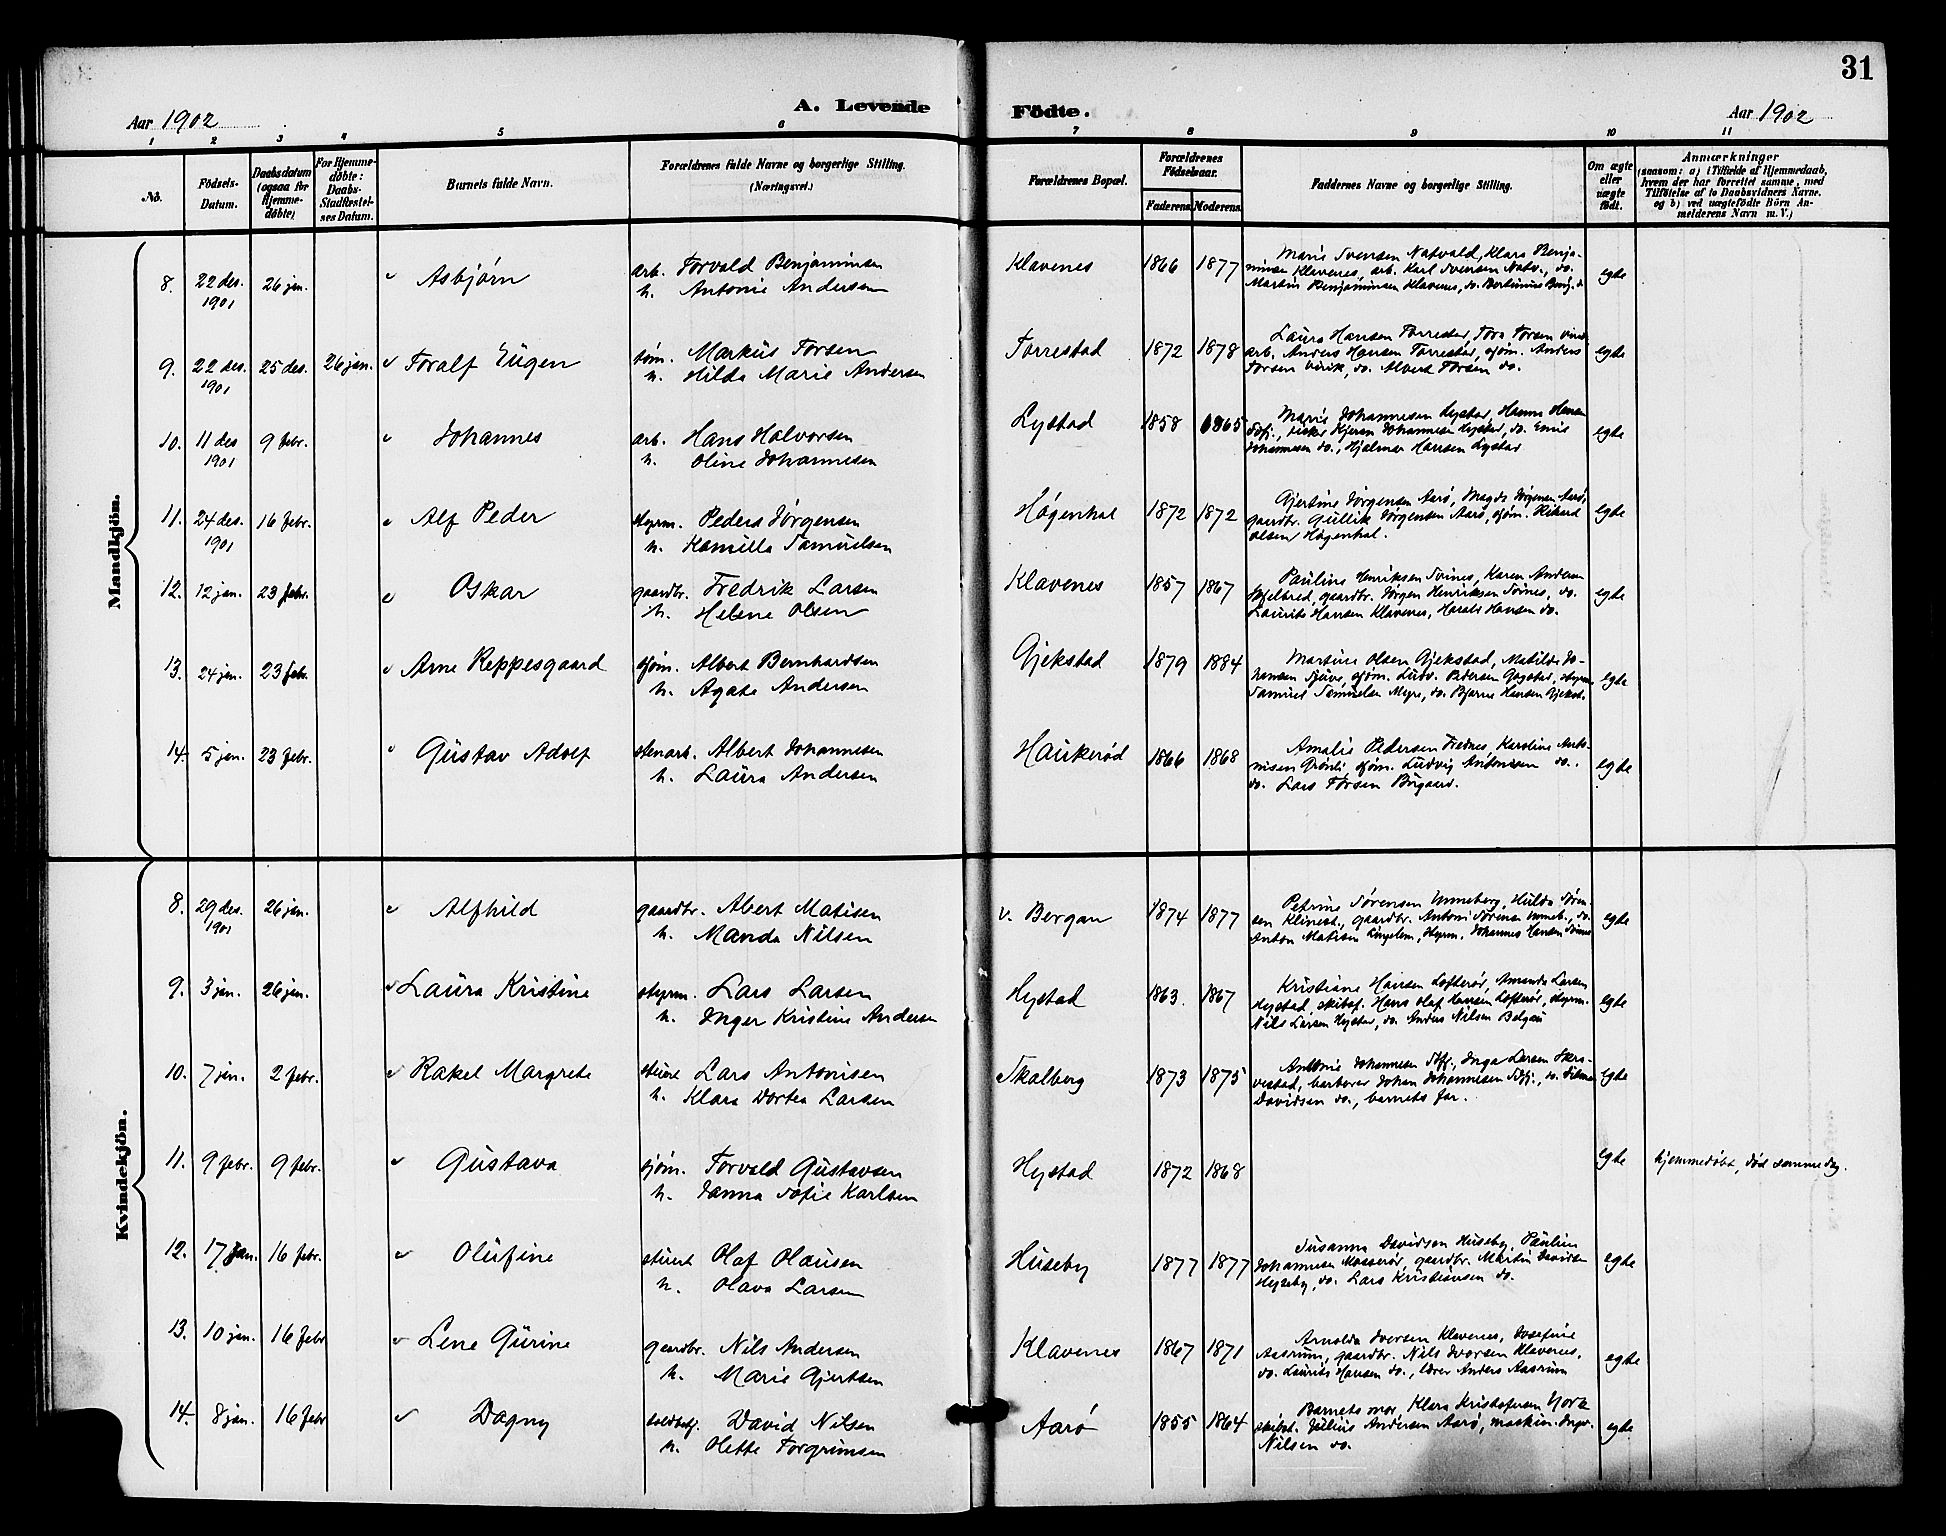 31
A. Levende Födte.
Aar 1902
Aar 1902
1 2 3 4 5 6 7 8 9 10 11
No.
Födsels-Datum.
Daabsdatum (ogsaa for Hjemmedöbte)
For Hjemmedöbte: Daabs-Stadfæstelses Datum.
Barnets fulde Navn.
Forældrenes fulde Navne og borgerlige Stilling. (Næringsvei.)
Forældrenes Bopæl.
Forældrenes Födselsaar.
Faderens. Moderens.
Faddernes Navne og borgerlige Stilling.
Om ægte eller uægte födt.
Anmærkninger
(saasom: a) i Tilfælde af Hjemmedaab, hvem der har forrettet samme, med Tilföielse af to Daabsvidners Navne. og b) ved uægtefödte Börn Anmelderens Navn m. V.)
Mandkjön.
8. 22 des. 1901 26 jan. Asbjørn arb. Torvald Benjaminsen
h. Antonie Andersen Klavenes 1866 1877 Marie Svensen Natvald, Klara Benja-
minsen Klavenes, arb. Karl Svensen Natv., do.
Martin Benjaminsen Klavenes, do. Bertinius Benj. do egte
9. 22 des. 1901 25 des. 26 jan. Toralf Eugen søm. Markus Torsen
h. Hilda Marie Andersen Torrestad 1872 1878 Laura Hansen Torrestad, Tora Torsen Virik
arb. Anders Hansen Torrestad, sjøm. Anders
Torsen Virik, do. Albert Torsen do. egte
10. 11 des 1901 9 febr. Johannes arb. Hans Halvorsen
h. Oline Johannesen Lystad 1858 1865 Marie Johannesen Lystad, Hanna Hansen
Sdfj., fisker Johannesen Lystad, do. Emil
Johannesen do., Hjalmar Hansen Lystad egte
11. 24 des. 1901 16 febr. Alf Peder styrm. Peder Jørgensen
h. Kamilla Samuelsen Høgenhal 1872 1872 Gjertine Jørgensen Aarø, Magda Jørgensen Aarø,
gaardbr. Gullik Jørgensen Aarø, sjøm. Rikard
Olsen Høgenhal. egte
12. 12 jan. 23 febr. Oskar gaardbr. Fredrik Larsen
h. Helene Olsen Klavenes 1857 1867 Pauline Henriksen Tvines, Karen Andersen
Skjelbred, gaardbr. Jørgen Henriksen Tvines, do.
Laurits Hansen Klavenes, Harald Hansen do. egte
13. 24 jan. 23 febr. Arne Reppesgaard sjøm. Albert Bernhardsen
h. Agate Andersen Gjekstad 1879 1884 Martine Olsen Gjekstad, Matilde Jo-
hansen, sjøm. Ludv. Pedersen, styrm.
Samuel Samuelsen Møyre, do. Bjarne Hansen Gjekst. egte
14. 5 jan. 23 febr. Gustav Adolf stenarb. Albert Johannesen
h. Laura Andersen Haukerød 1866 1868 Amalie Pedersen Fednes, Karoline Anto-
nisen Grønli, sjøm. Ludvig Antonisen do.
do. Lars Torsen Bugaard. egte
Kvindekjön.
8. 29 des. 1901 26 jan. Alfhild gaardbr. Albert Matisen
h. Manda Nilsen v. Bergan 1874 1877 Petrine Sørensen Unneberg, Hulda Søren-
sen Klinest., gaardbr. Anton Sørensen Unneb., do.
Anton Matisen Lingelem, styrm. Johannes Hansen Tvines egte
9. 3 jan. 26 jan. Laura Kristine styrm. Lars Larsen
h. Inger Kristine Andersen Hystad 1863. 1867 Kristiane Hansen Lofterød, Amanda Larsen
Hystad, skibsf. Hans Olaf Hansen Lofterød, styrm.
Nils Larsen Hystad, do. Anders Nilsen Belgau egte
10. 7 jan. 2 febr. Rakel Margrete stuert Lars Antonisen
h. Klara Dortea Larsen Skalberg 1873 1875 Antonie Johannesen Sdfj., Inga Larsen Skra-
vestad, barberer Johan Johannesen Sdfj., do. Ditman
Davidsen do., barnets far. egte
11. 9 febr. 9 febr. Gustava sjøm. Torvald Gustavsen
h. Janna Sofie Karlsen Hystad 1872 1868 egte hjemmedøbt, død samme dag.
12. 17 jan. 16 febr. Olufine stuert Olaf Olausen
h. Olava Larsen Huseby 1877 1877 Susanna Davidsen Huseby, Pauline
Johannesen Mosserød, gaardbr. Martin Davidsen
Huseby, do. Lars Kristiansen do. egte
13. 10 jan. 16 febr Lene Gurine gaardbr. Nils Andersen
h. Marie Gjertsen Klavenes 1867 1871 Arnolda Iversen Klavenes, Josefine
Aasrum, gaardbr. Nils Iversen Klavenes,
do. Laurits Hansen do., lærer Anders Aasrum egte
14. 8 jan. 16 febr Dagny toldbetj. David Nilsen
h. Olette Torgrimsen Aarø 1855 1864 Barnets mor, Klara Kristofersen York
skibst. Julius Andersen Aarø, maskin. Ingv.
Nilsen do. egte